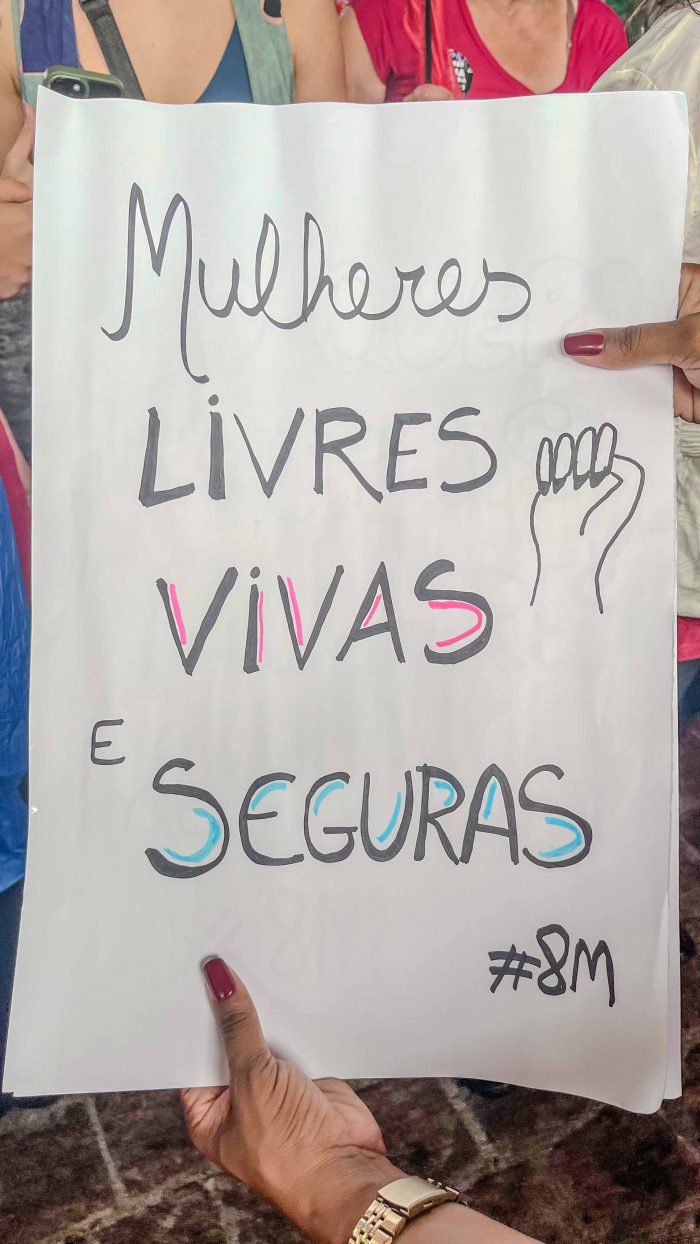 Mulheres
LiVRES
ViVAS
E
SEGURAS
#8M